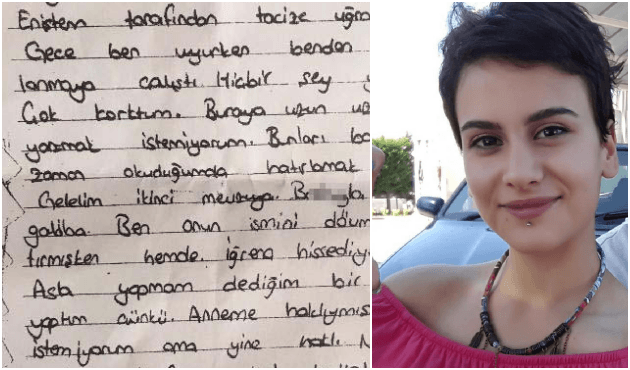 Eniştem tarafından tacize uğra
Gece ben uyurken benden
lanmaya çalıştı. Hiçbir şey
Çok korktum. Buraya uzun uz
yazmak istemiyorum. Bunları
zaman okuduğumda hatırlamak
Gelelim ikinci mevzuya.
galiba. Ben onun ismini döv
tırmışken hemde. İğrenç hissediy
Asla yapmam dediğim bir
yaptım çünkü. Anneme haklıymış
istemiyorum ama yine haklı.